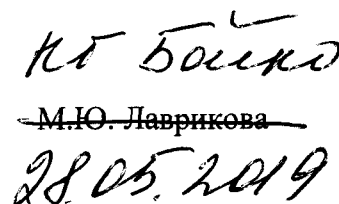 Бойко
М.Ю. Лаврикова
28.05.2019